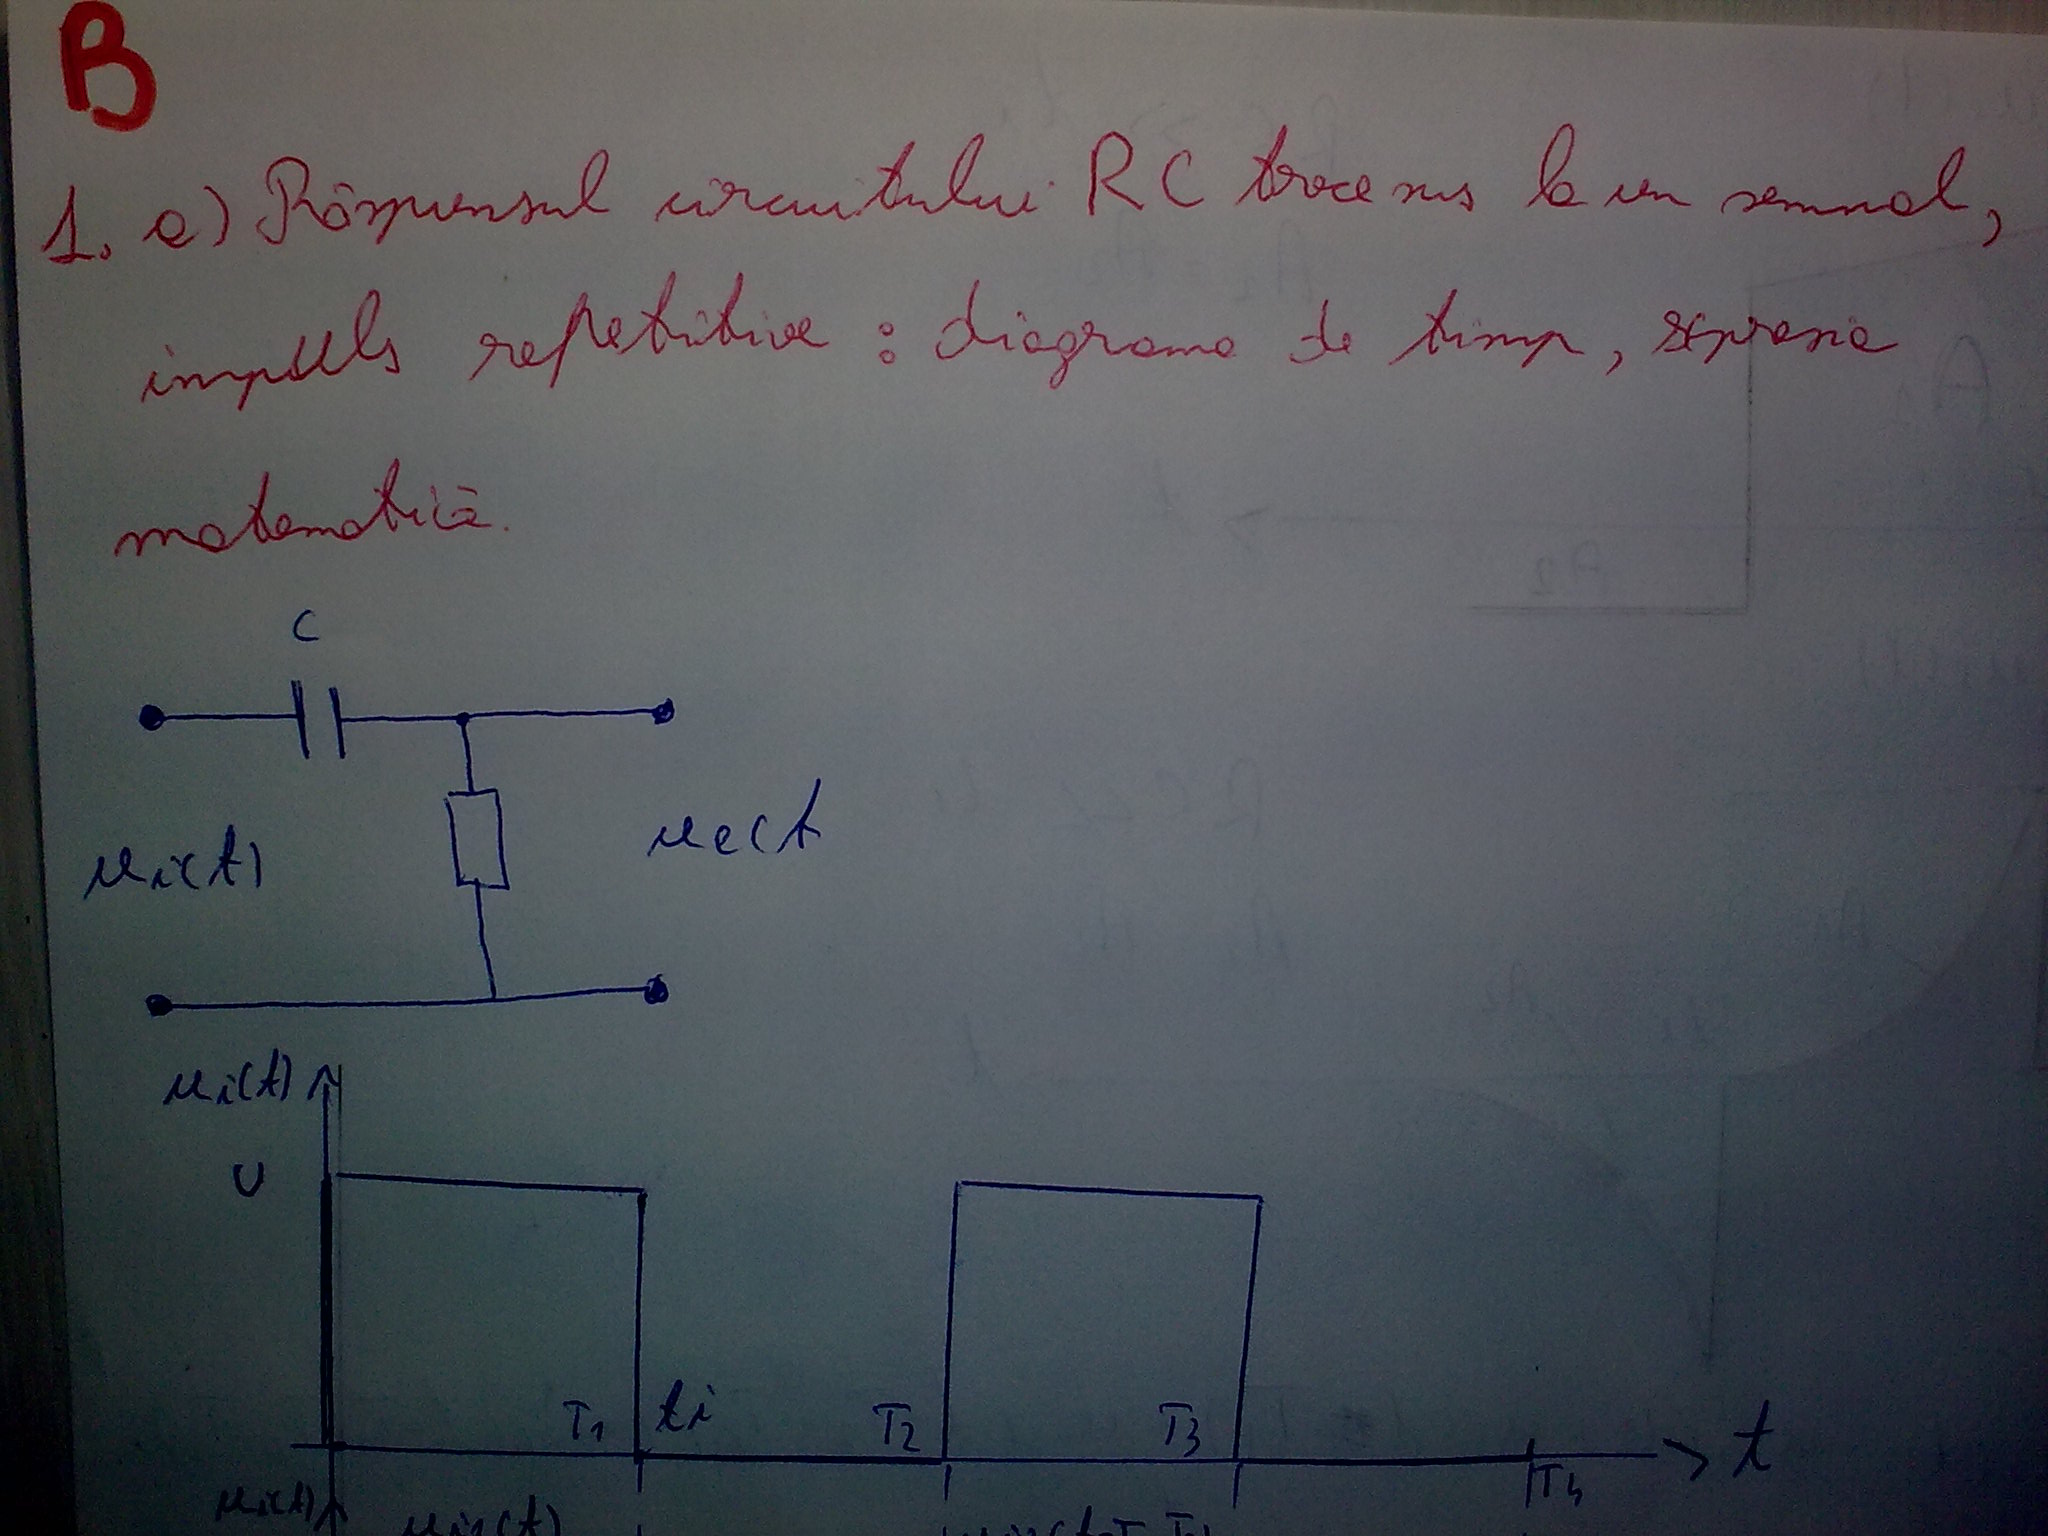 B
1. a) Răspunsul circuitului RC trece sus la un semnal,
impuls repetitive : diagrama de timp, expresia
matematică.
C
ui(t)
ue(t
ui(t)
U
T1 ti T2 T3 t
T4
ui(t)